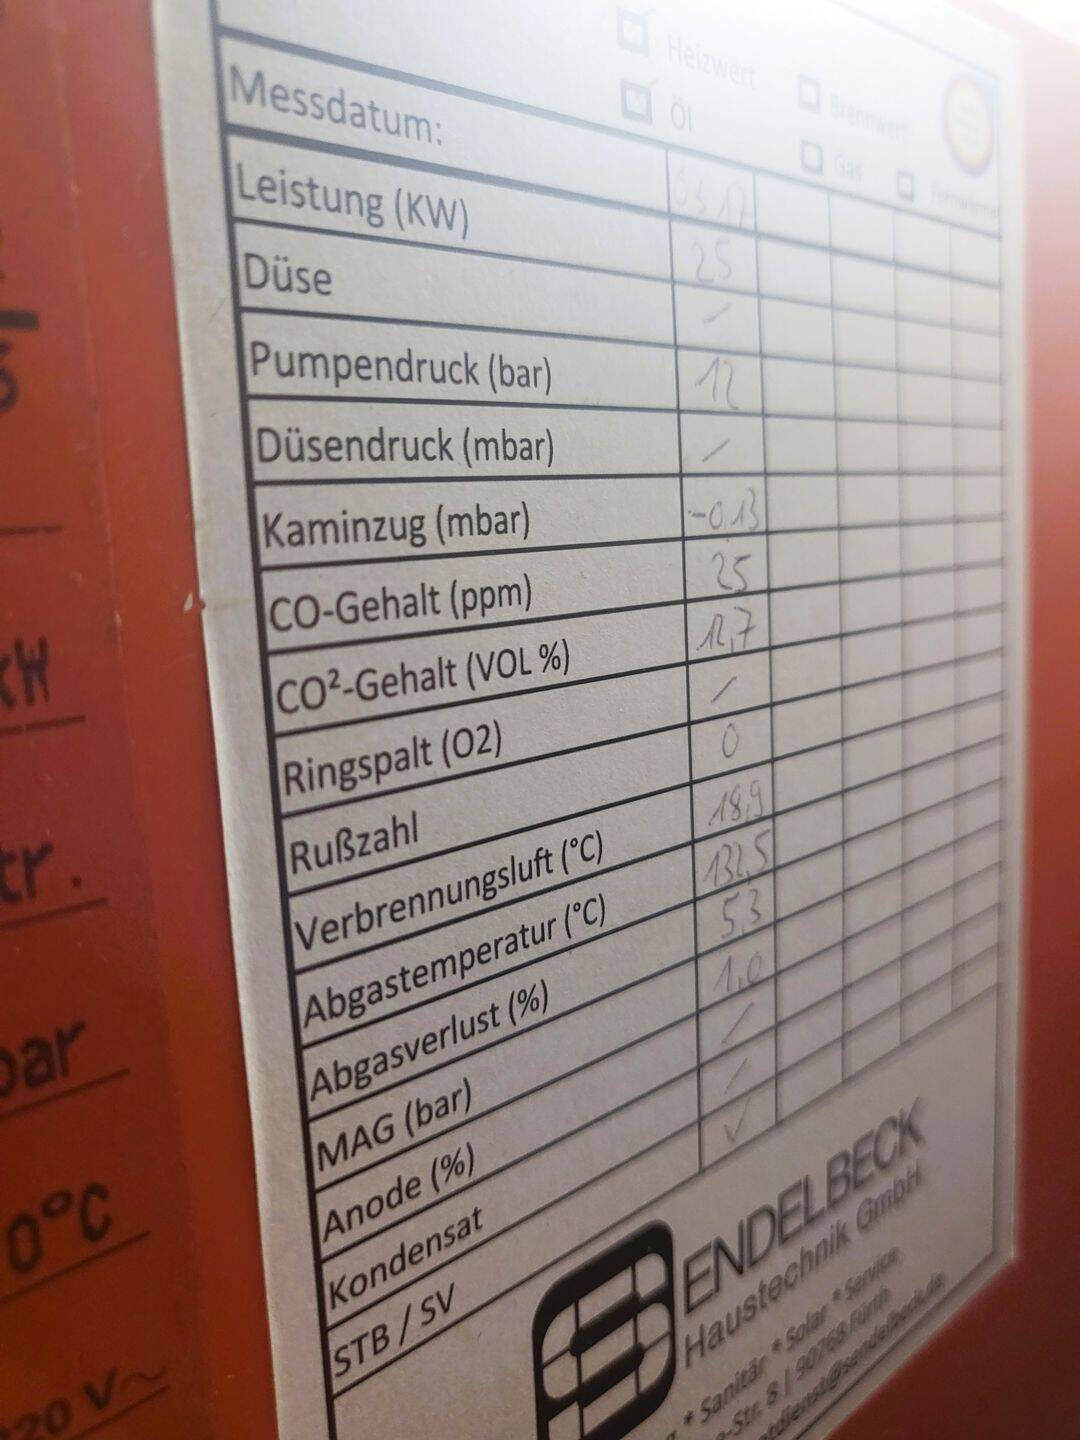 Heizwert Brennwert
Öl Gas
Messdatum: 17
Leistung (KW) 25
Düse /
Pumpendruck (bar) 12
Düsendruck (mbar) /
Kaminzug (mbar) -0,13
CO-Gehalt (ppm) 25
CO²-Gehalt (VOL %) 12,7
Ringspalt (O2) /
Rußzahl 0
Verbrennungsluft (°C) 18,9
Abgastemperatur (°C) 132,5
Abgasverlust (%) 5,3
MAG (bar) 1,0
Anode (%) /
Kondensat /
STB / SV ✓
SENDELBECK
Haustechnik GmbH
* Sanitär * Solar * Service
-Str. 8 | 90768 Fürth
dienst@sendelbeck.de
kW
tr.
bar
0°C
220 V~